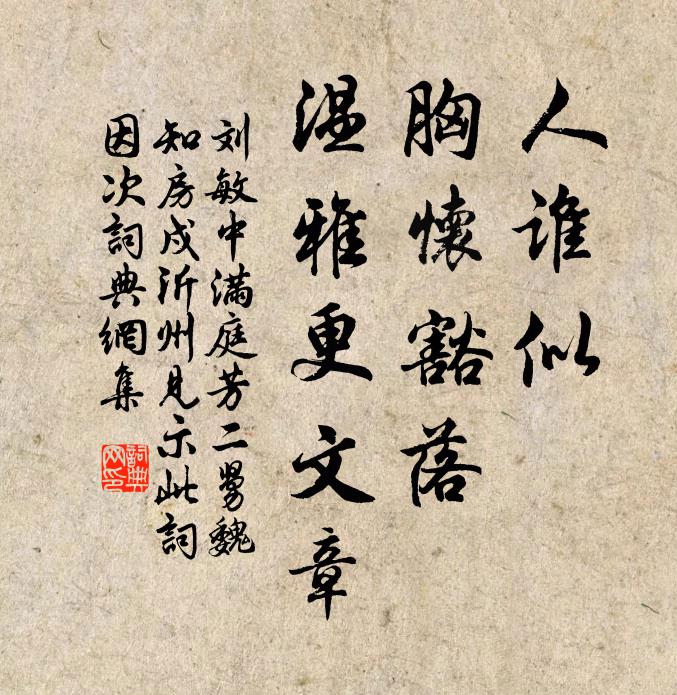 人谁似
胸懷豁落
温雅更文章
刘敏中满庭芳二舅魏
知房戍沂州见示此词
因次詞典網集
詞典網印